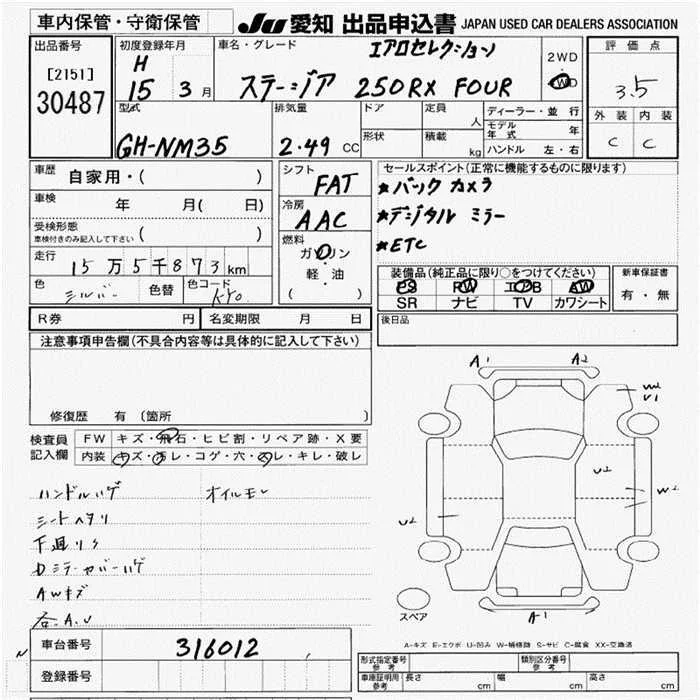 車内保管・守衛保管
JU 愛知 出品申込書 JAPAN USED CAR DEALERS ASSOCIATION
出品番号
[2151]
30487
初度登録年月
H
15 3 月
車名・グレード
エアロセレクション
ステージア 250RX FOUR
2WD
4WD
評価点
3.5
外装 内装
C C
型式
GH-NM35
排気量
2.49 CC
ドア
形状
定員
人
積載
kg
ディーラー・並行
モデル年式 年
ハンドル 左・右
車歴
自家用・( )
車検
年 月( 日)
受検形態
車検付きのみ記入して下さい ( )
走行
15万5千873km
色
シルバー
色替
色コード
KY0
シフト
FAT
冷房
AAC
燃料
ガソリン
・
軽・油
( )
セールスポイント(正常に機能するものに限ります)
★バックカメラ
★デジタルミラー
★ETC
装備品(純正品に限り○をつけてください)
PS PW エアB AW
SR ナビ TV カワシート
新車保証書
有・無
後日品
R券 円
名変期限 月 日
注意事項申告欄(不具合内容等は具体的に記入して下さい)
修復歴 有 (箇所 )
検査員記入欄
FW キズ・飛石・ヒビ割・リペア跡・X要
内装 キズ・汚レ・コゲ・穴・スレ・キレ・破レ
ハンドルハゲ オイルモレ
シートヘタリ
下廻りサ
Dミラーカバーハゲ
AWキズ
各A.U
A1 A2
W2
U1
U2
W2
U2
A-1
スペア
A-キズ E-エクボ U-凹み W-補修跡 S-サビ C-腐食 XX-交換済
車台番号
316012
登録番号
形式指定番号 参考
類別区分番号 参考
車庫証明用 参考
長さ cm 幅 cm 高さ cm